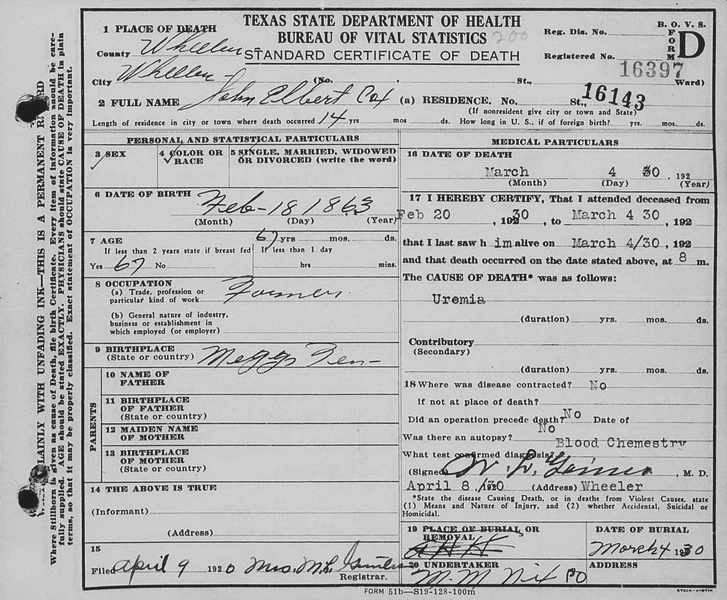 TEXAS STATE DEPARTMENT OF HEALTH
BUREAU OF VITAL STATISTICS 200
STANDARD CERTIFICATE OF DEATH
B. O. V. S.
FORM D
Reg. Dis. No.
Registered No. 16397
16143
1 PLACE OF DEATH
County Wheeler
City Wheeler (No. St., Ward)
2 FULL NAME John Elbert Cox (a) RESIDENCE. No. St.,
(If nonresident give city or town and State)
Length of residence in city or town where death occurred 14 yrs. mos ds. How long in U. S., if of foreign birth? yrs. mos. ds.
PERSONAL AND STATISTICAL PARTICULARS
3 SEX
4 COLOR OR RACE
5 SINGLE, MARRIED, WIDOWED OR DIVORCED (write the word)
6 DATE OF BIRTH Feb - 18 1863
(Month) (Day) (Year)
7 AGE 67 yrs mos ds.
If less than 2 years state if breast fed If less than 1 day
Yes 67 No hrs mins.
8 OCCUPATION
(a) Trade, profession or particular kind of work Farmer
(b) General nature of industry, business or establishment in which employed (or employer)
9 BIRTHPLACE
(State or country) Meggs Ten-
PARENTS
10 NAME OF FATHER
11 BIRTHPLACE OF FATHER
(State or country)
12 MAIDEN NAME OF MOTHER
13 BIRTHPLACE OF MOTHER
(State or country)
14 THE ABOVE IS TRUE
(Informant)
(Address)
15
Filed April 9 1920 Mrs. M L
Registrar.
MEDICAL PARTICULARS
16 DATE OF DEATH
March 4 30, 192
(Month) (Day) (Year)
17 I HEREBY CERTIFY, That I attended deceased from
Feb 20, 1930, to March 4 30, 192
that I last saw him alive on March 4/30, 192
and that death occurred on the date stated above, at 8 m.
The CAUSE OF DEATH* was as follows:
Uremia
(duration) yrs. mos. ds.
Contributory
(Secondary)
(duration) yrs. mos. ds.
18 Where was disease contracted? No
if not at place of death?
Did an operation precede death? No Date of
Was there an autopsy? No
What test confirmed diagnosis? Blood Chemestry
(Signed) M. D.
April 8, 1930 (Address) Wheeler
*State the disease Causing Death, or in deaths from Violent Causes, state
(1) Means and Nature of Injury, and (2) whether Accidental, Suicidal or
Homicidal.
19 PLACE OF BURIAL OR REMOVAL
DATE OF BURIAL
March 4 1930
20 UNDERTAKER
M. M Nix
ADDRESS
FORM 51b—S19-128-100m
PLAINLY WITH UNFADING INK—THIS IS A PERMANENT RECORD
Where Stillborn is given as cause of Death, file birth Certificate. Every item of information should be carefully supplied. AGE should be stated EXACTLY. PHYSICIANS should state CAUSE OF DEATH in plain terms, so that it may be properly classified. Exact statement of OCCUPATION is very important.